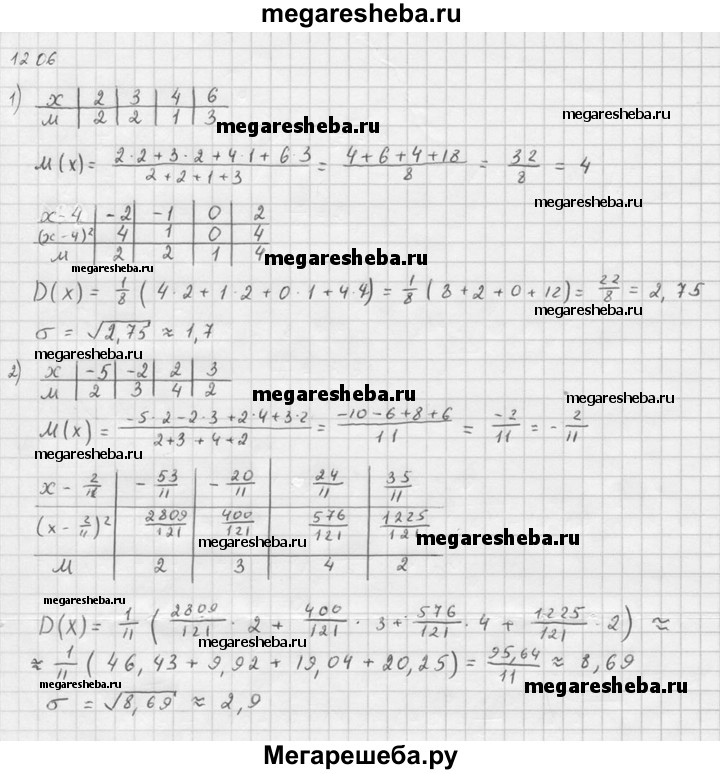 megaresheba.ru
1206
1) x | 2 | 3 | 4 | 6
megaresheba.ru
M | 2 | 2 | 1 | 3
megaresheba.ru
M(x) = (2·2+3·2+4·1+6·3)/(2+2+1+3) = (4+6+4+18)/8 = 32/8 = 4
megaresheba.ru
x-4 | -2 | -1 | 0 | 2
(x-4)² | 4 | 1 | 0 | 4
M | 2 | 2 | 1 | 4
megaresheba.ru
megaresheba.ru
D(x) = 1/8 (4·2+1·2+0·1+4·4) = 1/8 (8+2+0+12) = 22/8 = 2,75
σ = √2,75 ≈ 1,7
megaresheba.ru
megaresheba.ru
2) x | -5 | -2 | 2 | 3
M | 2 | 3 | 4 | 2
megaresheba.ru
megaresheba.ru
M(x) = (-5·2-2·3+2·4+3·2)/(2+3+4+2) = (-10-6+8+6)/11 = -2/11 = -2/11
megaresheba.ru
x - 2/11 | -53/11 | -20/11 | 24/11 | 35/11
(x - 2/11)² | 2809/121 | 400/121 | 576/121 | 1225/121
megaresheba.ru
megaresheba.ru
M | 2 | 3 | 4 | 2
megaresheba.ru
D(x) = 1/11 (2809/121 · 2 + 400/121 · 3 + 576/121 · 4 + 1225/121 · 2) ≈
megaresheba.ru
≈ 1/11 (46,43 + 9,92 + 19,04 + 20,25) = 95,64/11 ≈ 8,69
megaresheba.ru
megaresheba.ru
σ = √8,69 ≈ 2,9
Мегарешеба.ру